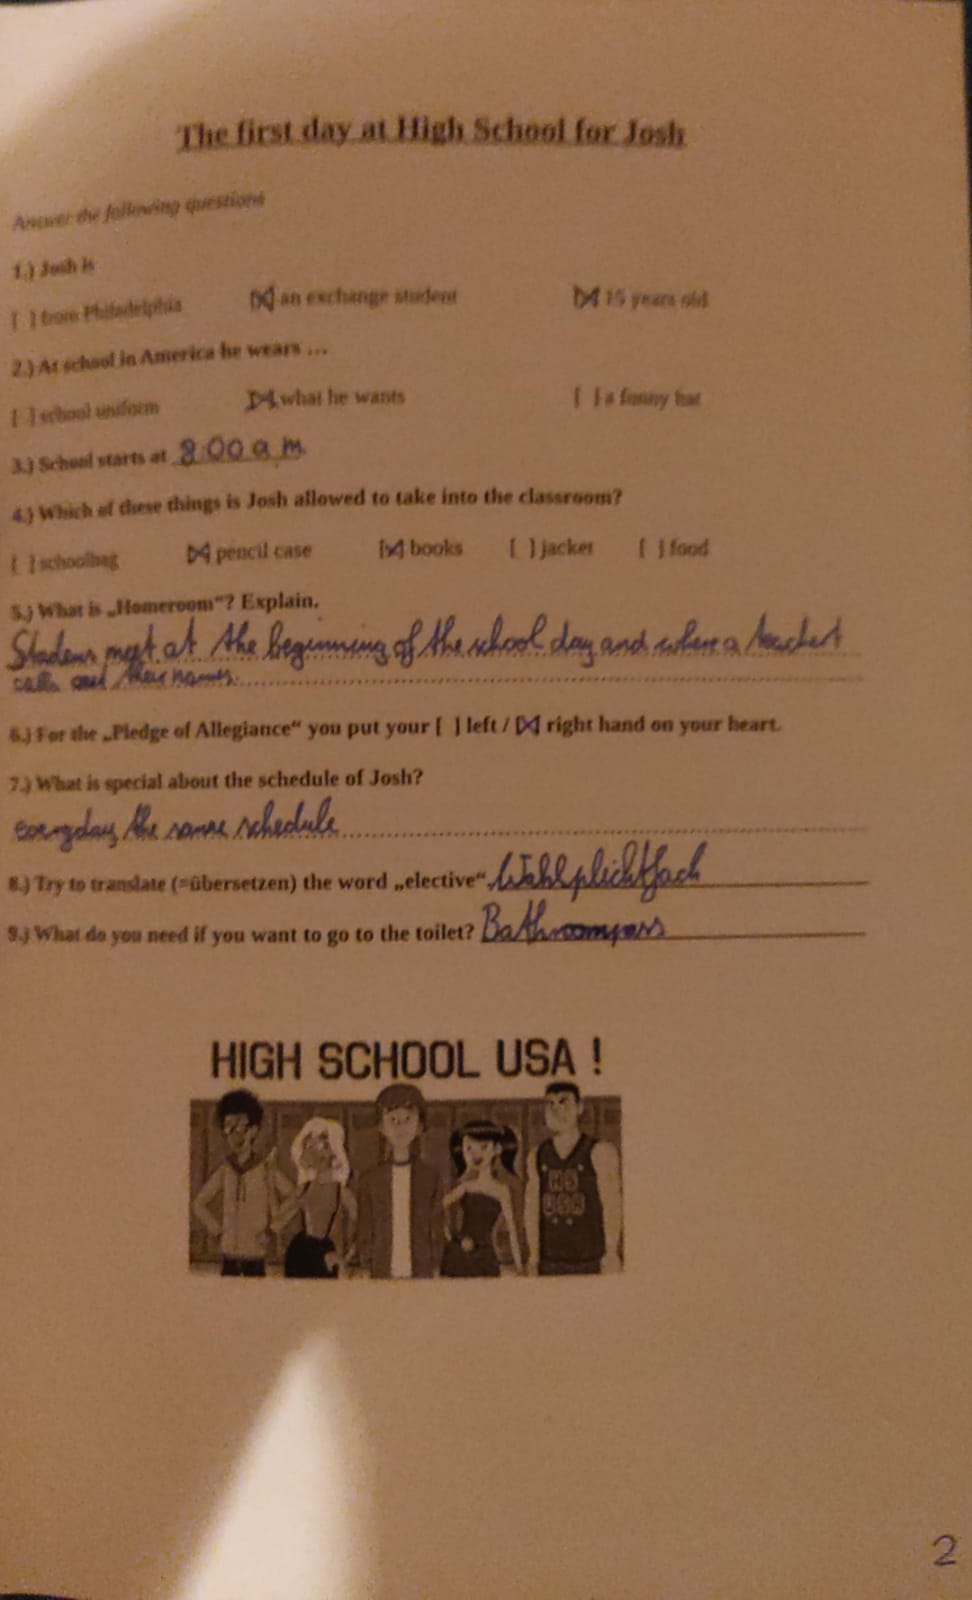 The first day at High School for Josh
Answer the following questions
1.) Josh is
[ ] from Philadelphia [X] an exchange student [X] 15 years old
2.) At school in America he wears …
[ ] school uniform [X] what he wants [ ] a funny hat
3.) School starts at 8:00 a.m.
4.) Which of these things is Josh allowed to take into the classroom?
[ ] schoolbag [X] pencil case [X] books [ ] jacket [ ] food
5.) What is „Homeroom“? Explain.
meet at the beginning of the school day and where a
calls their names.
6.) For the „Pledge of Allegiance“ you put your [ ] left / [X] right hand on your heart.
7.) What is special about the schedule of Josh?
everyday the same schedule
8.) Try to translate (=übersetzen) the word „elective“ Wahlplichtfach
9.) What do you need if you want to go to the toilet? Bathroompass
HIGH SCHOOL USA !
HS
USA
2